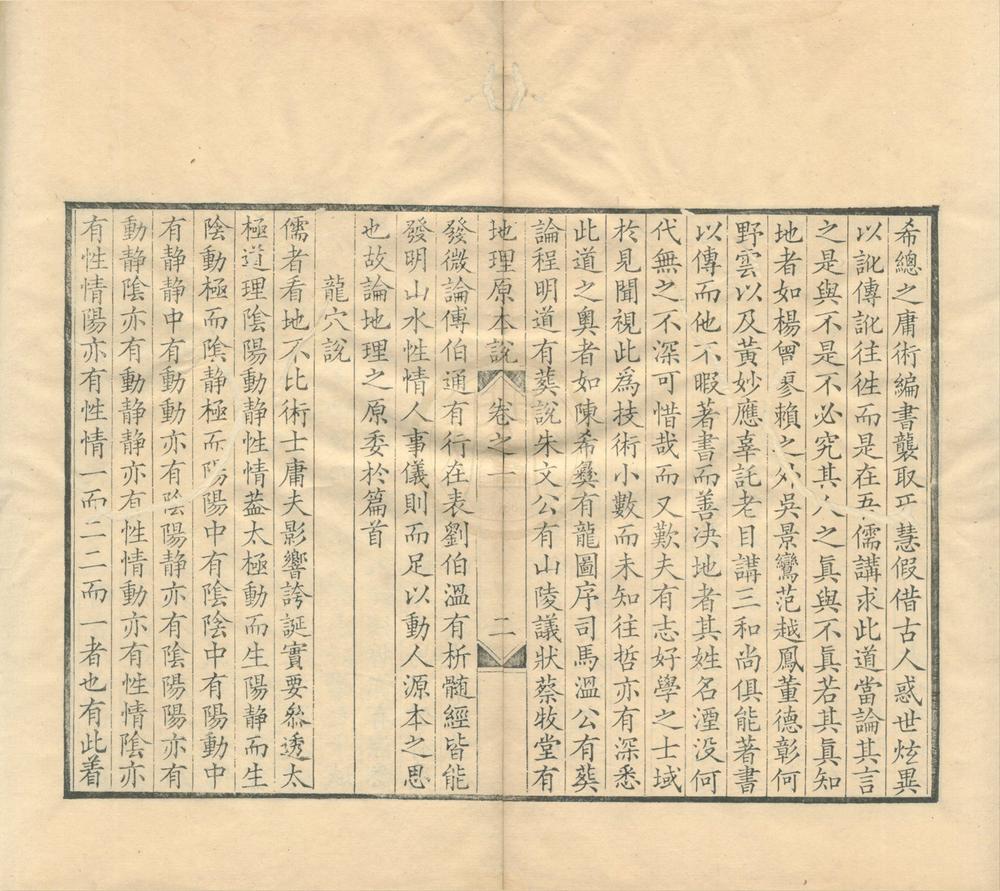 希總之庸術編書襲取牙慧假借古人惑世炫異
以訛傳訛往徃而是在吾儒講求此道當論其言
之是與不是不必究其人之眞與不眞若其眞知
地者如楊曾廖賴之外吳景鸞范越鳳董德彰何
野雲以及黃妙應辜託老目講三和尚俱能著書
以傳而他不暇著書而善决地者其姓名湮没何
代無之不深可惜哉而又歎夫有志好學之士域
於見聞視此爲技術小數而未知往哲亦有深悉
此道之奧者如陳希彝有龍圖序司馬溫公有葬
論程明道有葬說朱文公有山陵議狀蔡牧堂有
地理原本說 卷之一 二
發微論傅伯通有行在表劉伯溫有析髓經皆能
發明山水性情人事儀則而足以動人源本之思
也故論地理之原委於篇首
龍穴說
儒者看地不比術士庸夫影響誇誕實要叅透太
極道理陰陽動靜性情葢太極動而生陽靜而生
陰動極而陰靜極而陽陽中有陰陰中有陽動中
有靜靜中有動動亦有陰陽靜亦有陰陽陽亦有
動靜陰亦有動靜靜亦有性情動亦有性情陰亦
有性情陽亦有性情一而二二而一者也有此着